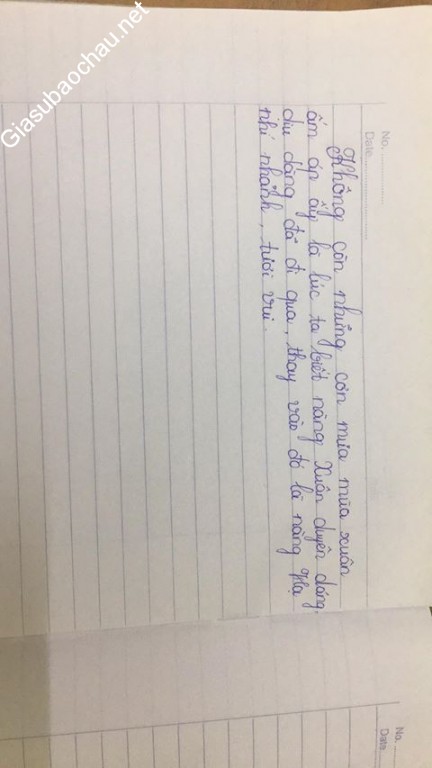 Giasubaochau.net
No. ............
Date ............
Không còn những cơn mưa mùa xuân
ấm áp ấy là lúc ta biết nàng Xuân duyên dáng,
dịu dàng đã đi qua, thay vào đó là nàng Hạ
nhí nhảnh, tươi vui.
No. ......
Date ......